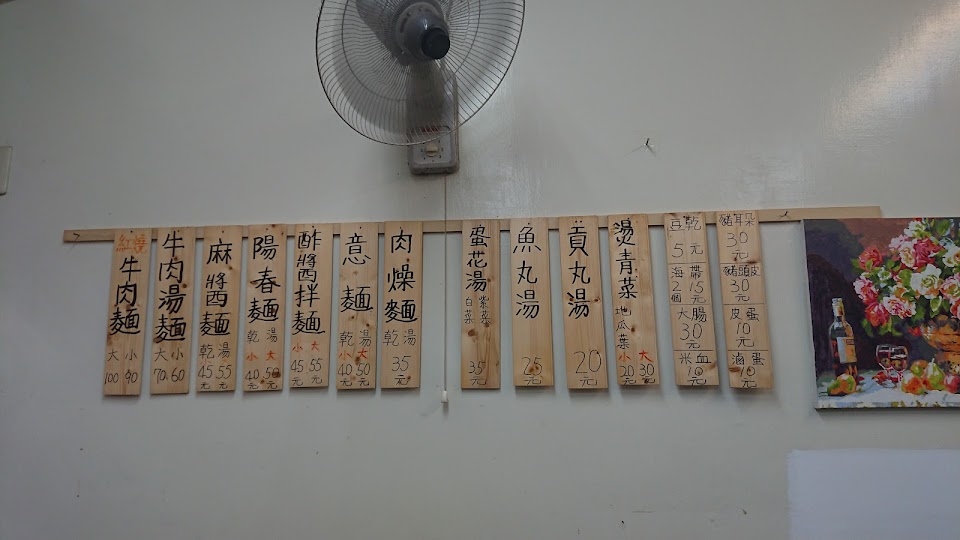 紅燒
牛肉麵
大 小
100 90
牛肉湯麵
大 小
70 60
麻將西麵
乾 湯
45元 55元
陽春麵
乾 湯
小 大
40元 50元
酢將西拌麵
小 大
45元 55元
意麵
乾 湯
小 大
40元 50元
肉燥麵
乾 湯
35元
蛋花湯
白菜 紫菜
35元
魚丸湯
25元
貢丸湯
20元
燙青菜
地瓜葉
小 大
20元 30元
豆乾
5元
海帶
2個 15元
大腸
30元
米血
10元
豬耳朵
30元
豬頭皮
30元
皮蛋
10元
滷蛋
10元